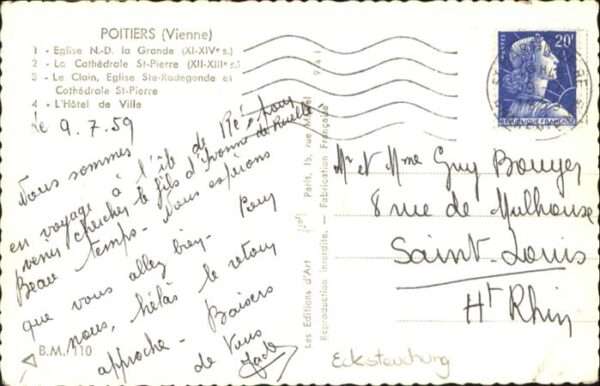 POITIERS (Vienne)
1 - Eglise N.-D. la Grande (XI-XIVe s.)
2 - La Cathédrale St-Pierre (XII-XIIIe s.)
3 - Le Clain, Eglise Ste-Radegonde et
Cathédrale St-Pierre
4 - L'Hôtel de Ville
le 9.7.59
Nous sommes
en voyage à l'île de Ré, pour
venir chercher le fils d'Yvonne de Ruelle
Beau temps. Nous espérons
que vous allez bien. Pour
nous, hélas le retour
approche. Baisers
de Vous
B.M. 110
Les Editions d'Art
Paris, 15, rue
Reproduction interdite. - Fabrication Française
20F
REPUBLIQUE FRANÇAISE
Mr et Mme Guy Bouyer
8 rue de Mulhouse
Saint-Louis
Ht Rhin